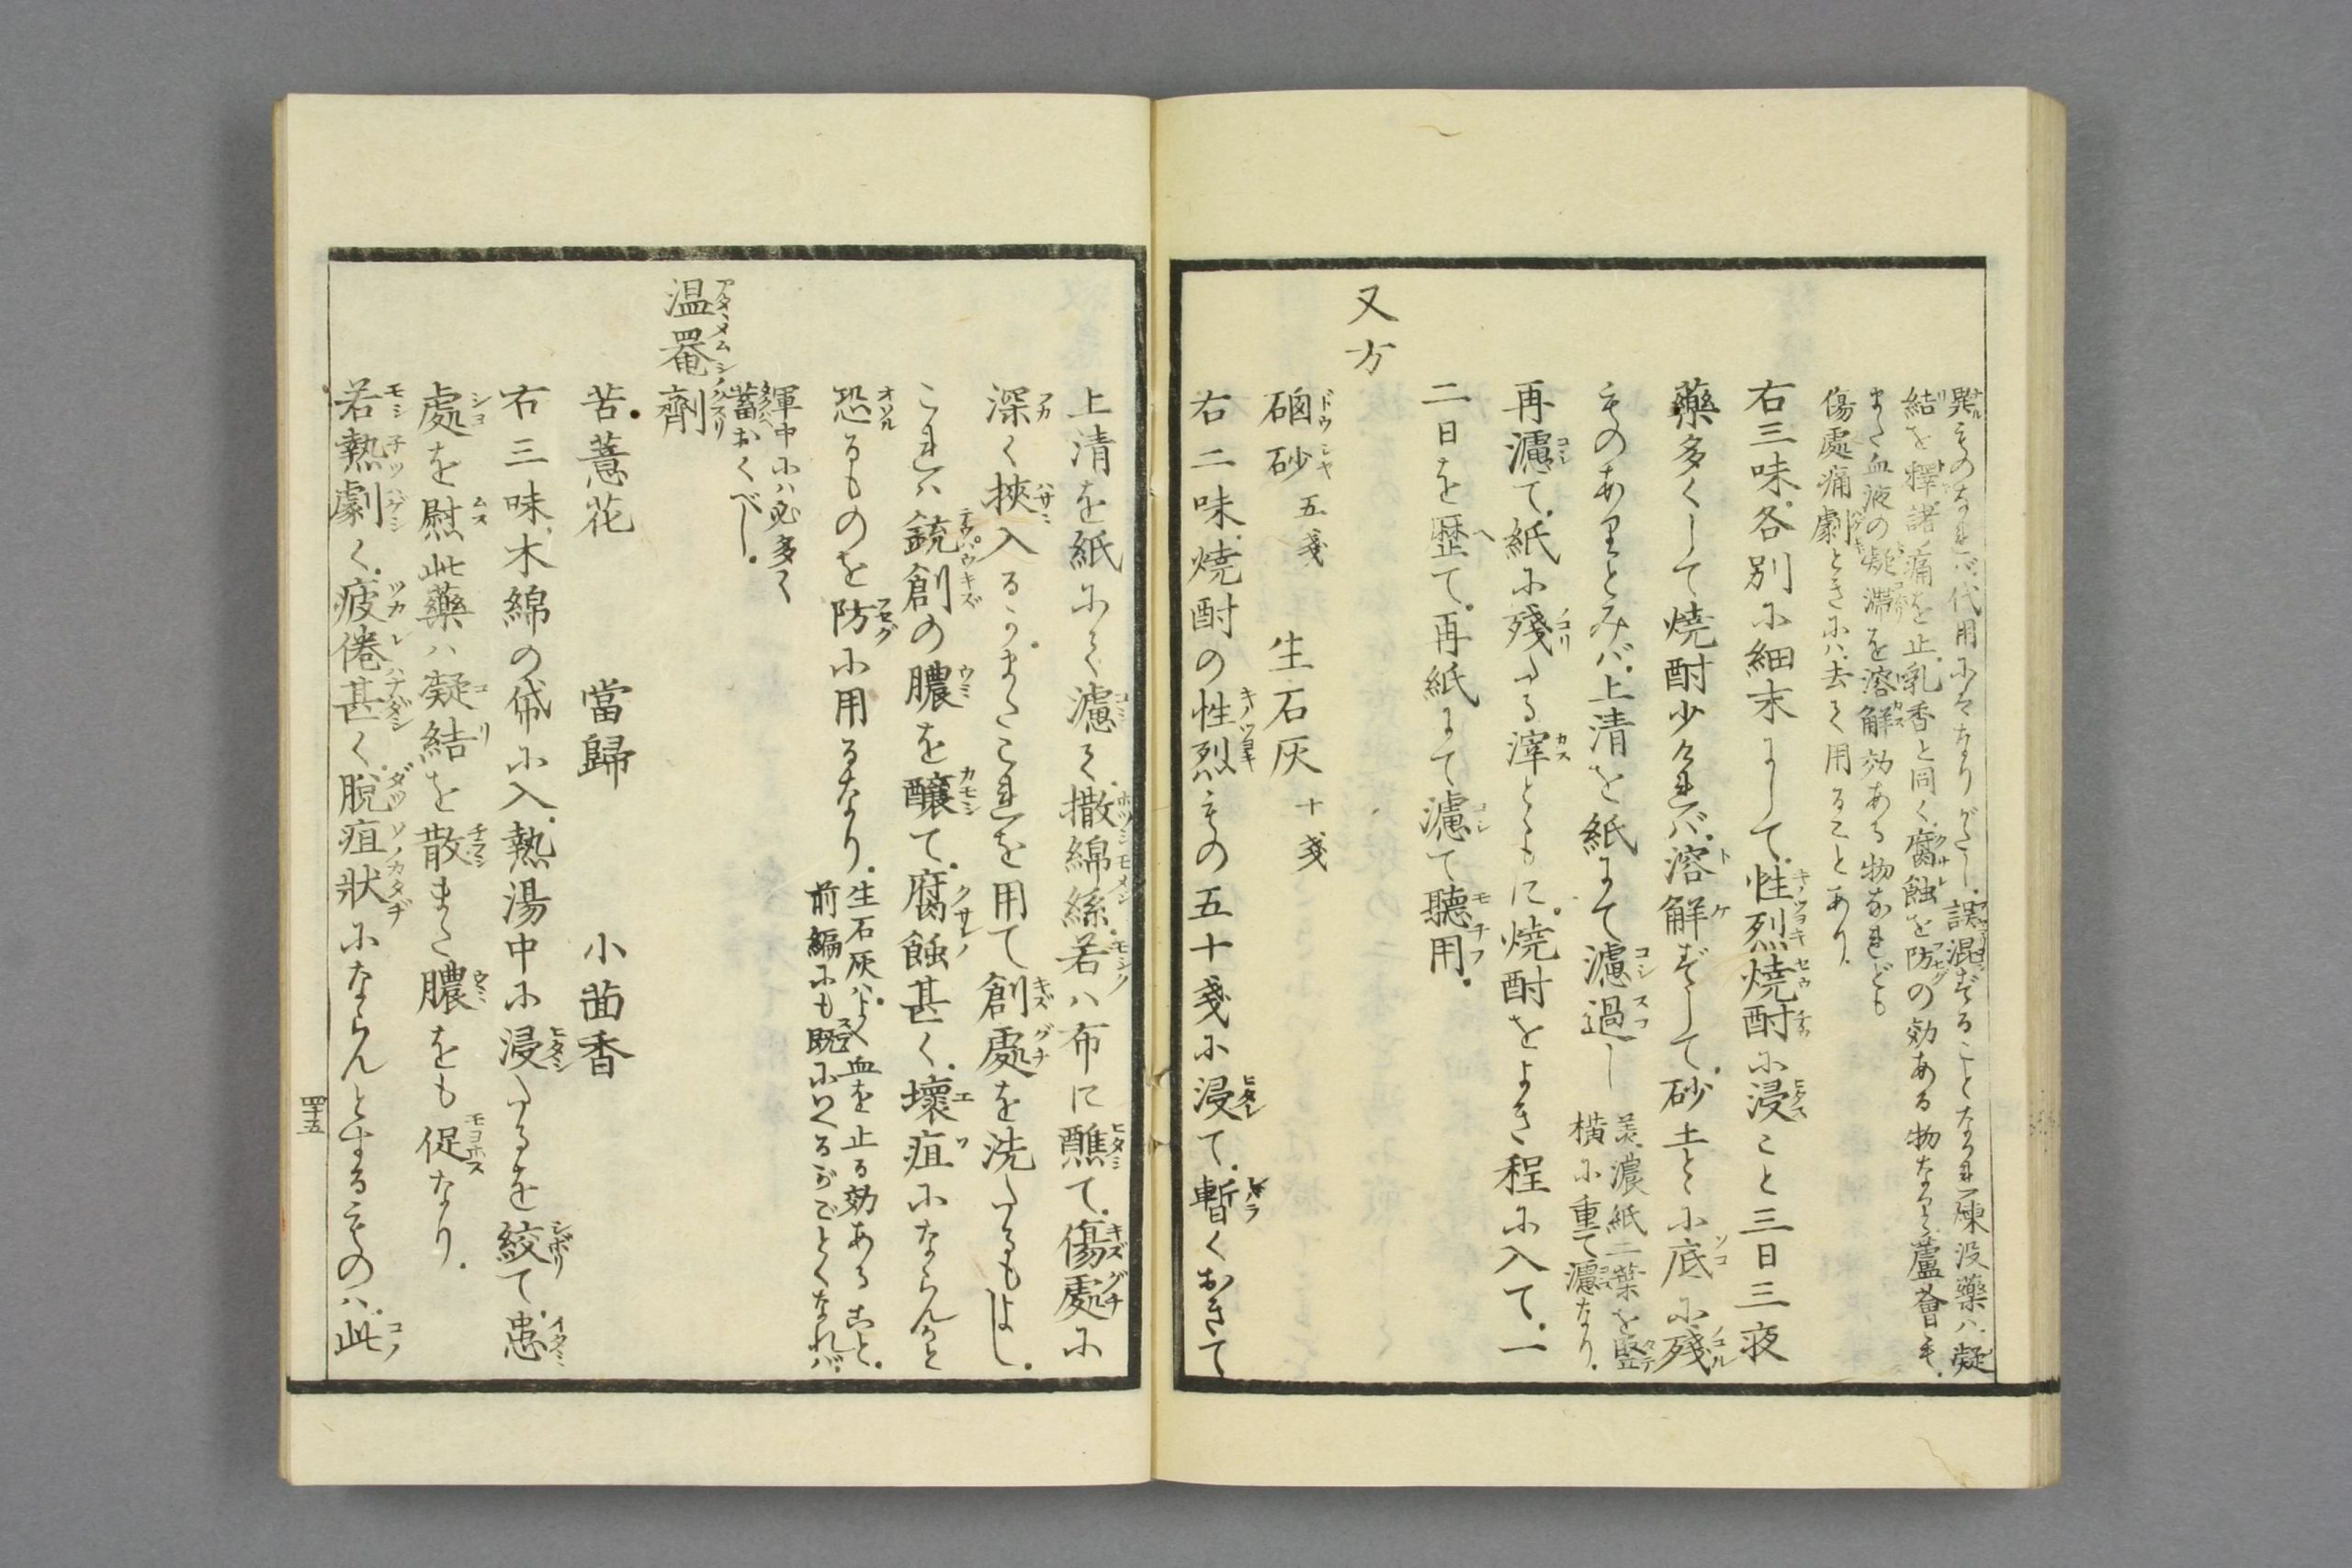 異ものなれバ代用にハなりがたし。誤混ずることなかれ。陳没藥ハ凝
結を釋、諸痛を止、乳香と同く、腐蝕を防の効ある物なり。蘆薈も、
また血液の凝滯を溶解効ある物なれども
傷處痛劇ときにハ、去て用ることあり。
右三味、各別に細末にして、性烈燒酎に浸こと三日三夜
藥多くして燒酎少けれバ、溶解ずして、砂土と小底に殘
ものありとみバ、上清を紙にて濾過し 美濃紙二葉を竪
横に重て濾なり。
再濾て、紙に殘たる滓とともに、燒酎をよき程に入て、一
二日を歴て、再紙にて濾て聽用。
又方
硇砂 五戔 生石灰 十戔
右二味、燒酎の性烈ものの五十戔に浸て、暫くおきて
上清を紙にて濾て、撒綿絲、若ハ布に醮て、傷處に
深く挾入るゝ。またこれを用て創處を洗たるもよし。
これハ銃創の膿を釀て、腐蝕甚く、壞疽にならんかと
恐るものを防に用るなり。生石灰ハよく血を止る効あること、
前編にも既にいへるがごとくなれバ、
軍中にハ必多く
蓄おくべし。
温罨劑
苦薏花 當歸 小茴香
右三味、木綿の帒に入、熱湯中に浸たるを絞て、患
處を慰、此藥ハ凝結を散、また膿をも促なり。
若熱劇く、疲倦甚く、脱疽狀にならんとするものハ、此
四十五